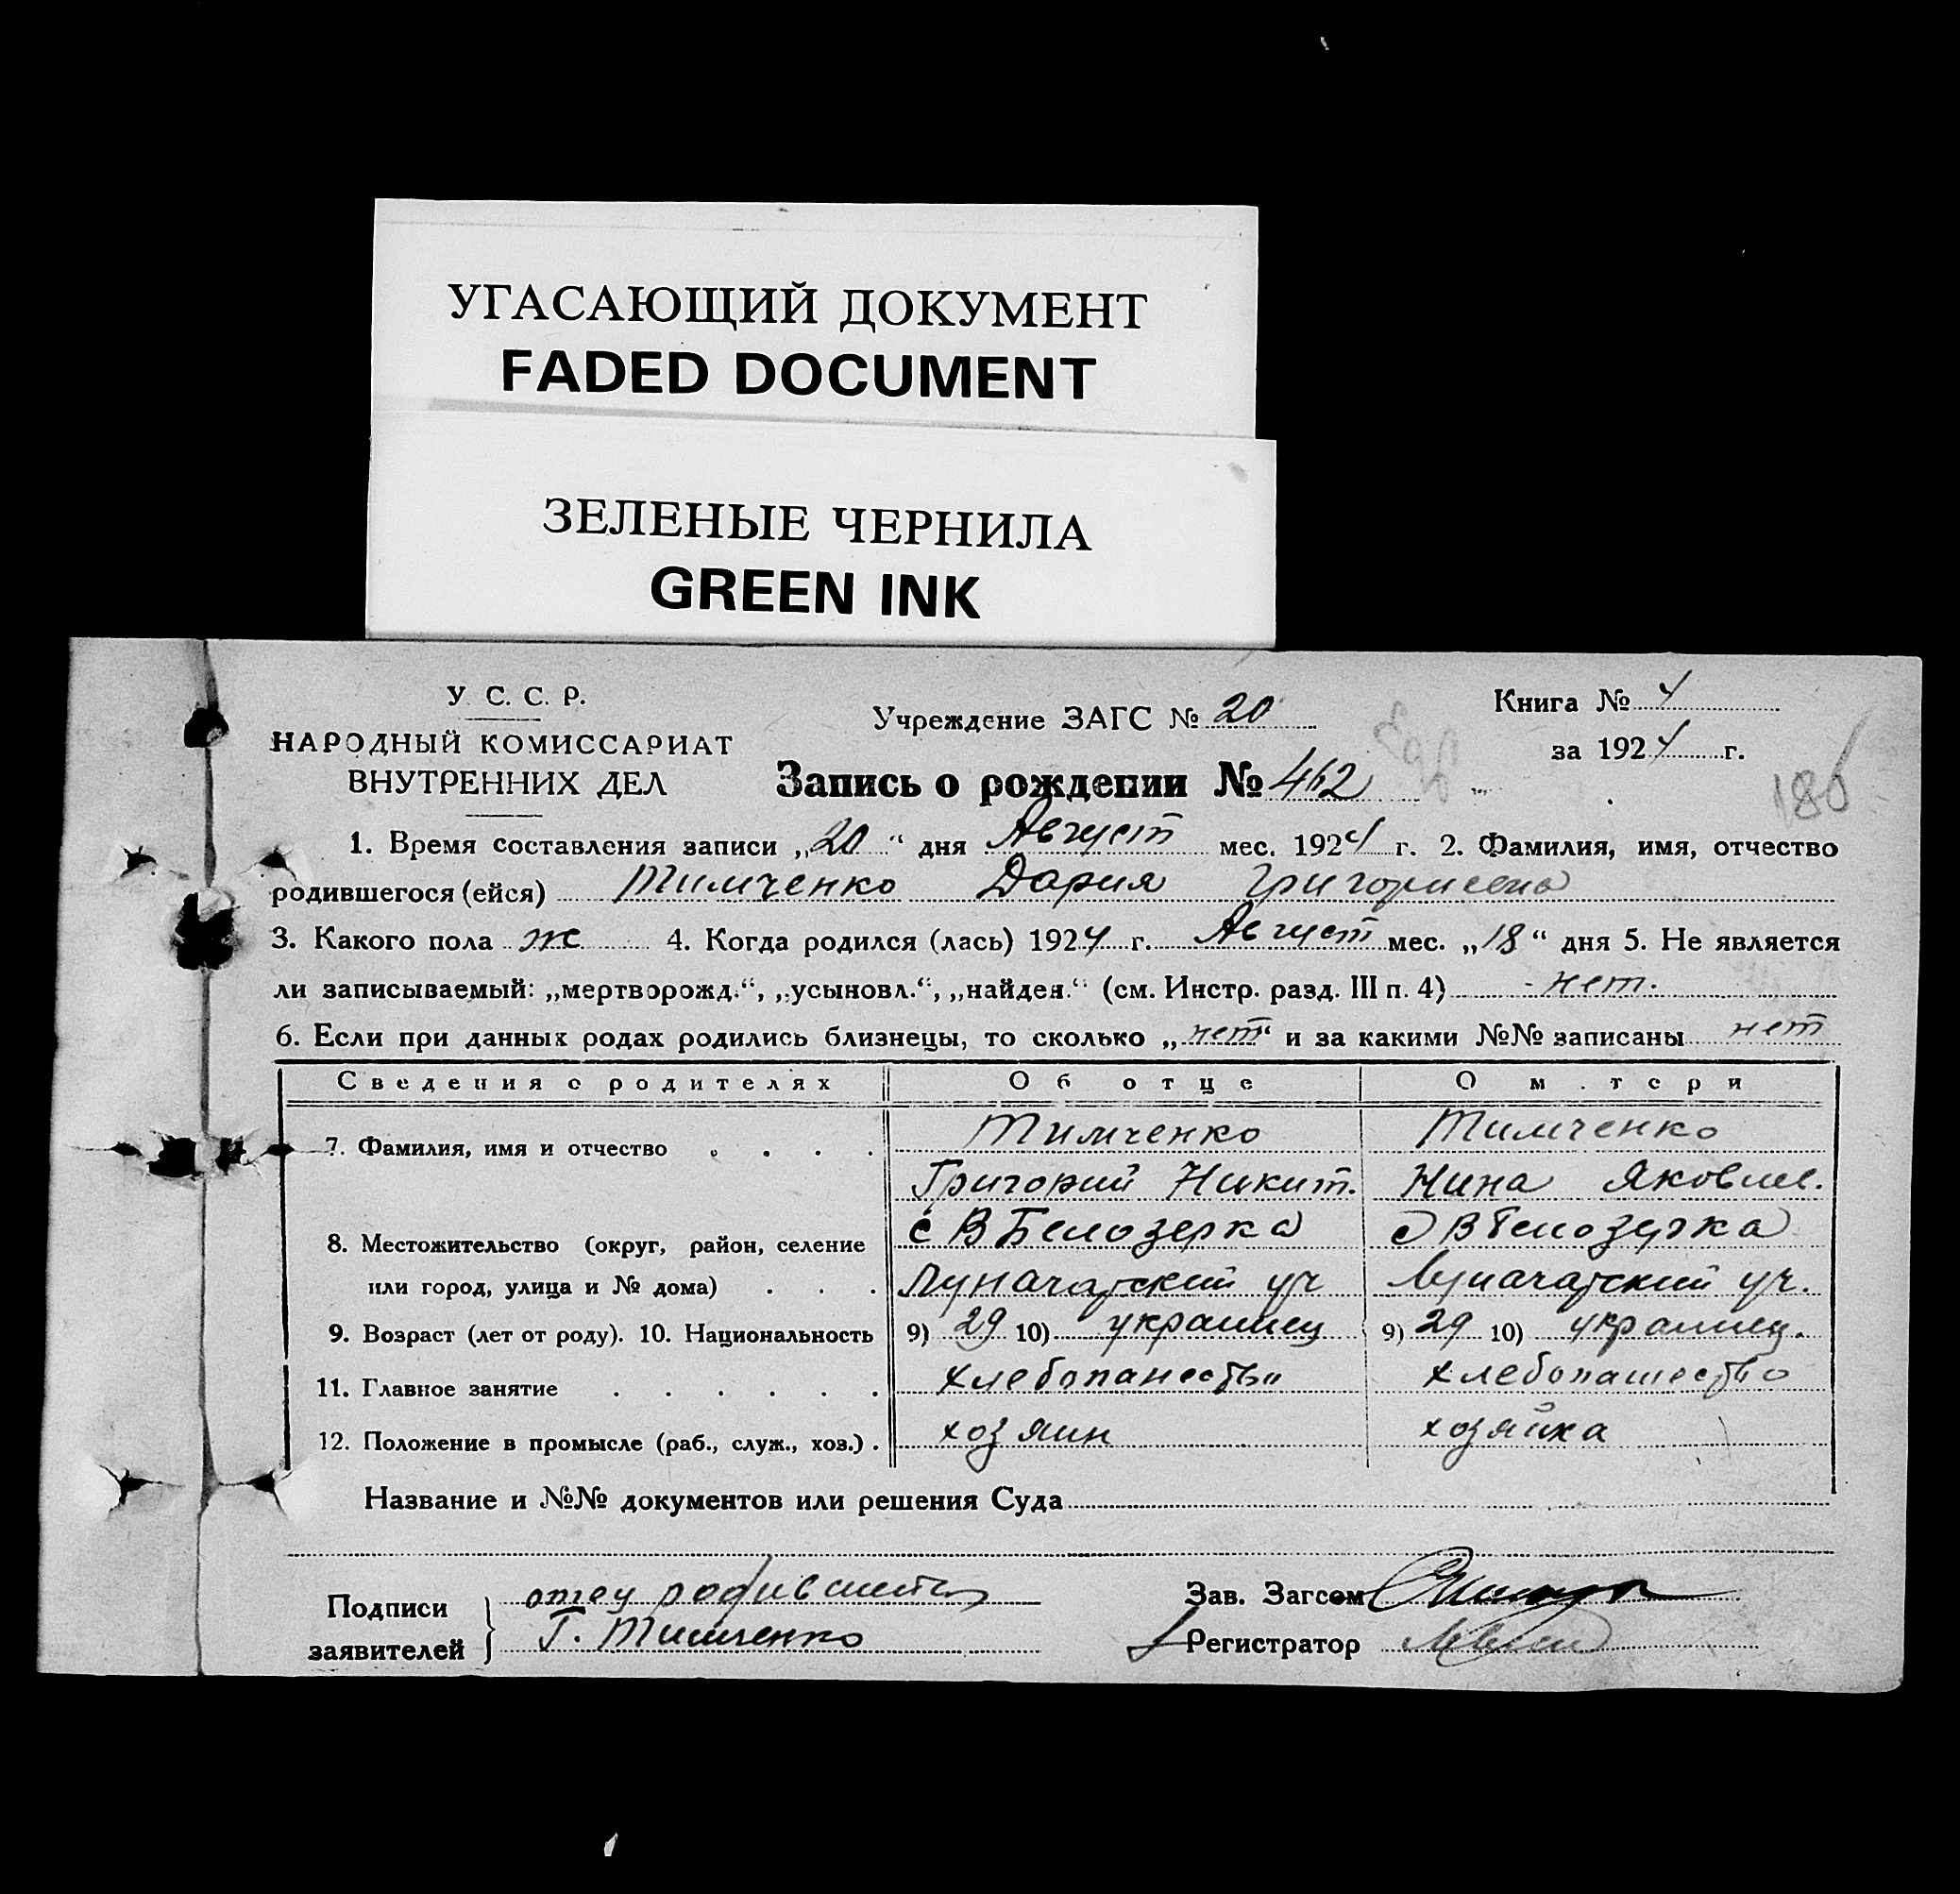 УГАСАЮЩИЙ ДОКУМЕНТ
FADED DOCUMENT
ЗЕЛЕНЫЕ ЧЕРНИЛА
GREEN INK
У. С. С. Р.
НАРОДНЫЙ КОМИССАРИАТ
ВНУТРЕННИХ ДЕЛ
Учреждение ЗАГС № 20
Книга № 4
за 1924 г.
Запись о рождении № 462
186
1. Время составления записи „20“ дня Август мес. 1924 г. 2. Фамилия, имя, отчество
родившегося (ейся) Тимченко Дария Григориевна
3. Какого пола ж 4. Когда родился (лась) 1924 г. Август мес. „18“ дня 5. Не является
ли записываемый: „мертворожд.“, „усыновл.“, „найден.“ (см. Инстр. разд. III п. 4) - нет.
6. Если при данных родах родились близнецы, то сколько „нет“ и за какими №№ записаны нет
Сведения о родителях Об отце О м.тери
7. Фамилия, имя и отчество . . . . Тимченко Тимченко
Григорий Никит. Нина Яковле.
8. Местожительство (округ, район, селение с В Белозерка с В Белозерка
или город, улица и № дома) . . . Луначарский уч Луначарский уч.
9. Возраст (лет от роду). 10. Национальность 9) 29 10) украинец 9) 29 10) украинец.
11. Главное занятие . . . . . . хлебопашество хлебопашество
12. Положение в промысле (раб., служ., хоз.) . хозяин хозяйка
Название и №№ документов или решения Суда
Подписи заявителей } отец
Г. Тимченко
Зав. Загсом
Регистратор